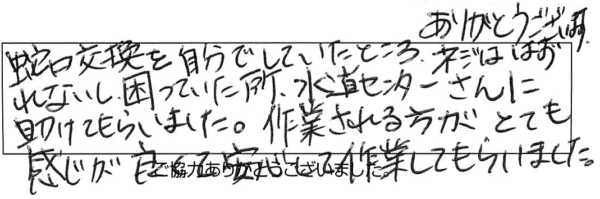 ありがとうございます。
蛇口交換を自分でしていたところ、ネジははず
れないし、困っていた所、水道センターさんに
助けてもらいました。作業される方がとても
感じが良くて安心して作業してもらいました。
ご協力ありがとうございました。